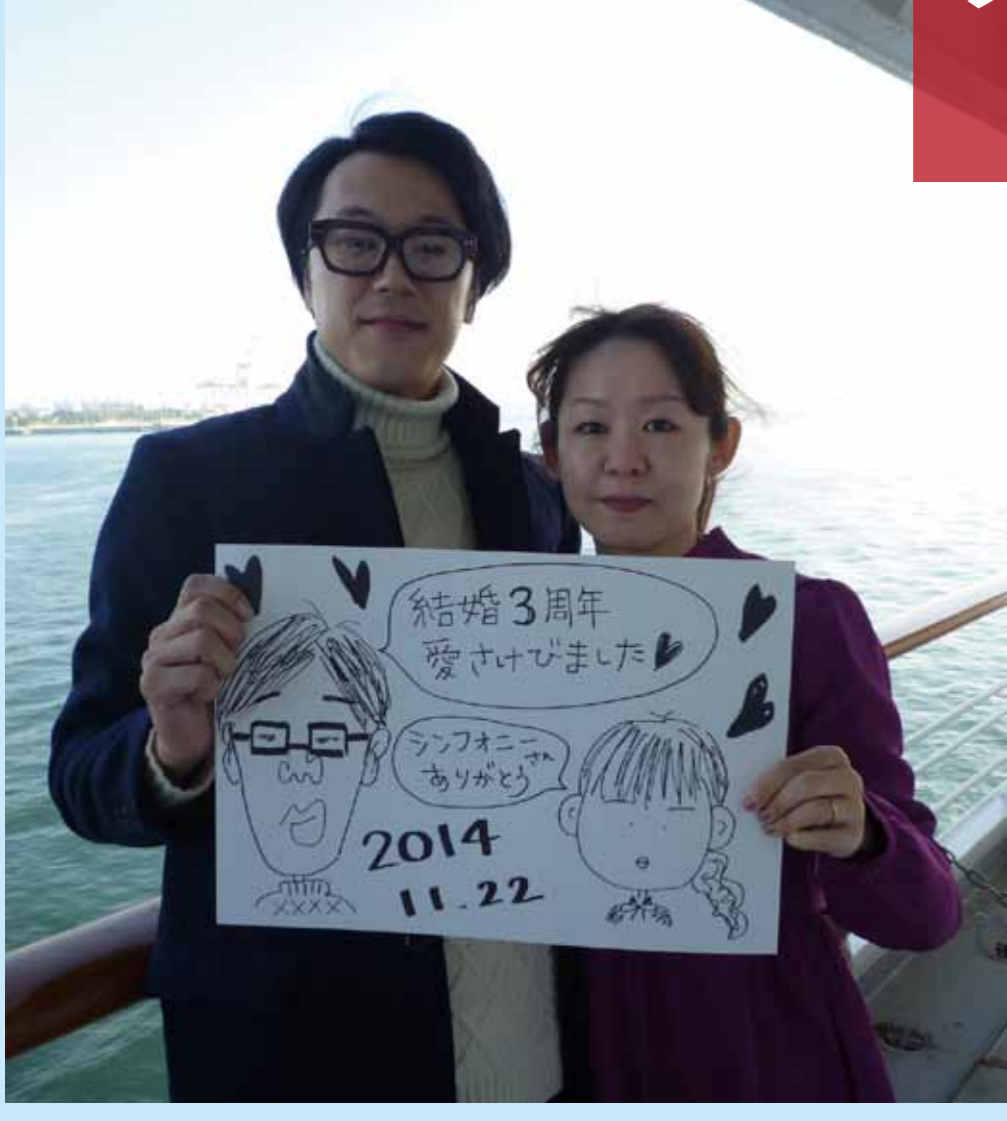 結婚3周年
愛さけびました
シンフォニーさん
ありがとう
2014
11.22